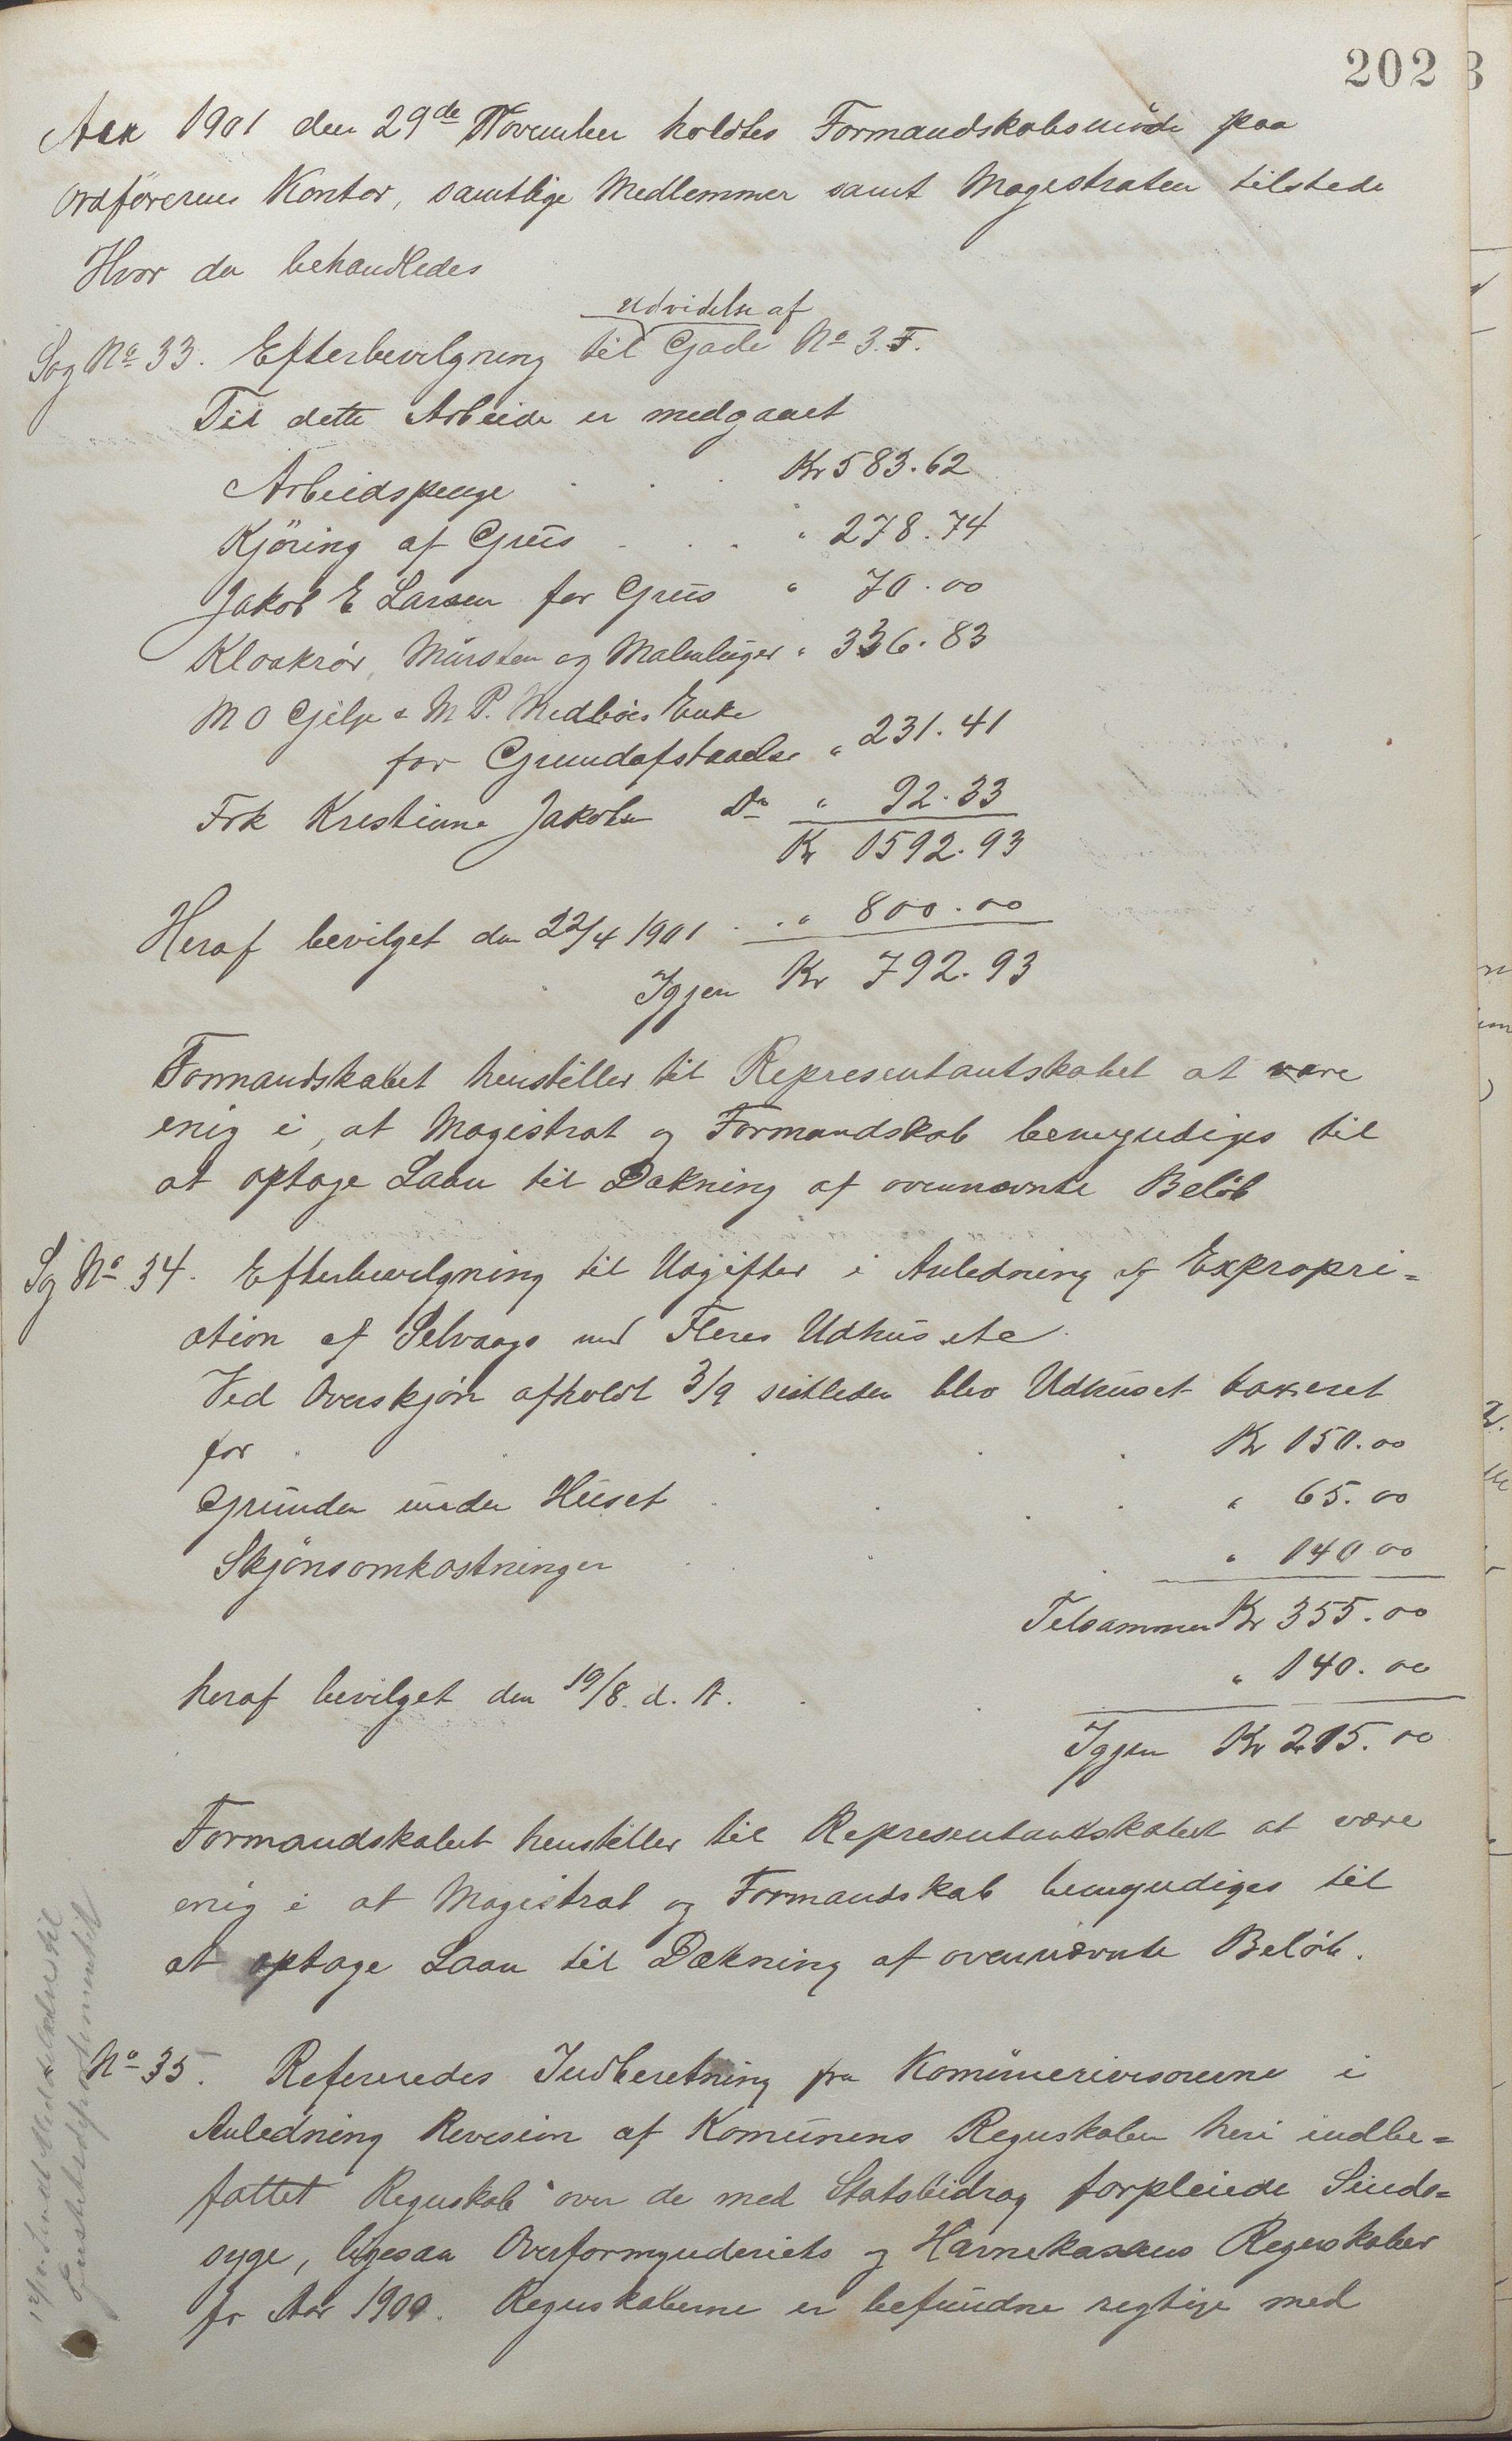 202
Aar 1901 den 29de November holdtes Formandskabsmöde paa
Ordförerens Kontor, samtlige Medlemmer samt Magistraten tilstede
Hvor da behandledes
udvidelse af
Sag No 33. Efterbevilgning til Gade No 3. F.
Til dette Arbeide er medgaaet
Arbeidspenge . . . Kr 583.62
Kjöring af Grus . . . " 278.74
Jakob E Larsen for Grus " 70.00
Kloakrör, Mursten og " 336.83
M O Gilje & M P. Enke
for Grundafstaaelse " 231.41
Frk Kristiane Jakobsen Do " 92.33
Kr 1592.93
Heraf bevilget den 22/4 1901 . . " 800.00
Igjen Kr 792.93
Formandskabet henstiller til Representantskabet at være
enig i, at Magistrat og Formandskab bemyndiges til
at optage Laan til Dækning af ovennævnte Belöb
Sag No 34. Efterbevilgning til Udgifter i Anledning af Expropri=
ation af Selvaags med Fleres Udhus etc.
Ved Overskjön afholdt 3/9 sidstleden blev Udhuset taxeret
for . . . . . Kr 150.00
Grunden under Huset . . . . " 65.00
Skjönsomkostninger . . . " 140 00
Tilsammen Kr 355.00
heraf bevilget den 19/8 d. A. . . " 140.00
Igjen Kr 215.00
Formandskabet henstiller til Representantskabet at være
enig i at Magistrat og Formandskab bemyndiges til
at optage Laan til Dækning af ovennævnte Belöb.
No 35. Refereredes Indberetning fra Komunerevisorerne i
Anledning Revision af Komunens Regnskaber heri indbe=
fattet Regnskab over de med Statsbidrag forpleiede Sinds=
syge, ligesaa Overformynderiets og Havnekassens Regnskaber
for Aar 1900. Regnskaberne er befundne rigtige med
Sendt Meddelelse til
Justitsdepartementet